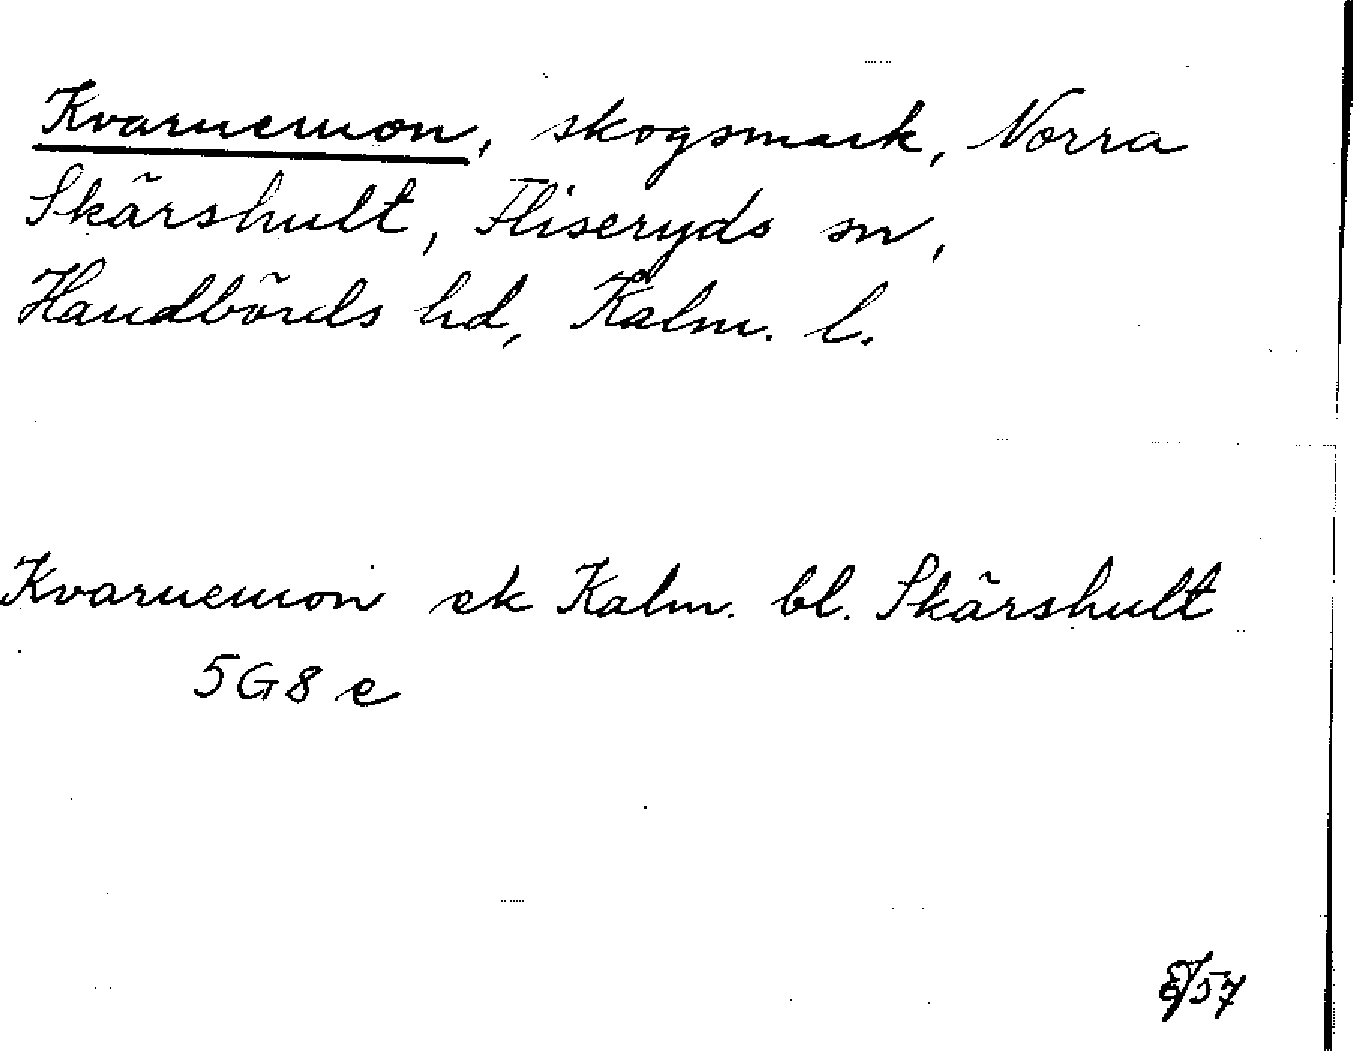 Kvarnemon, skogsmark, Norra
Skärshult, Fliseryds sn,
Handbörds hd, Kalm. l.
Kvarnemon ek Kalm. bl. Skärshult
5G8 e
/57